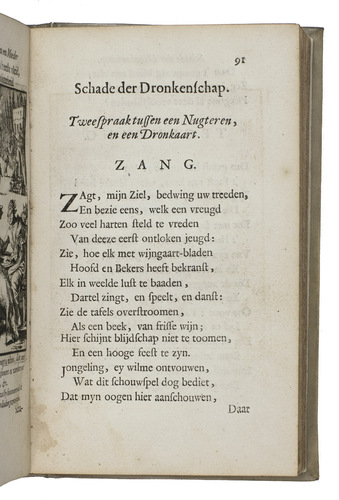 91
Schade der Dronkenſchap.
Tweeſpraak tuſſen een Nugteren,
en een Dronkaart.
ZANG.
ZAgt, mijn Ziel, bedwing uw treeden,
En bezie eens, welk een vreugd
Zoo veel harten ſteld te vreden
Van deeze eerſt ontloken jeugd:
Zie, hoe elk met wijngaart-bladen
Hoofd en Bekers heeft bekranſt,
Elk in weelde luſt te baaden,
Dartel zingt, en ſpeelt, en danſt:
Zie de tafels overſtroomen,
Als een beek, van friſſe wijn;
Hier ſchijnt blijdſchap niet te toomen,
En een hooge feeſt te zyn.
Jongeling, ey wilme ontvouwen,
Wat dit ſchouwſpel dog bediet,
Dat myn oogen hier aanſchouwen,
Daar